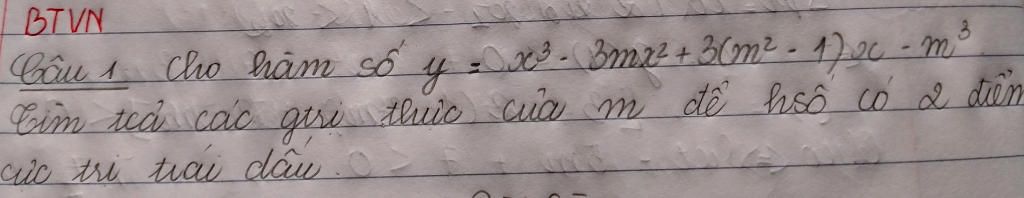 BTVN
Câu 1 Cho hàm số y = x³ - 3mx² + 3(m² - 1)x - m³
Tìm tcả các gtri thực của m để hsố có 2 điểm
cực trị trái dấu.